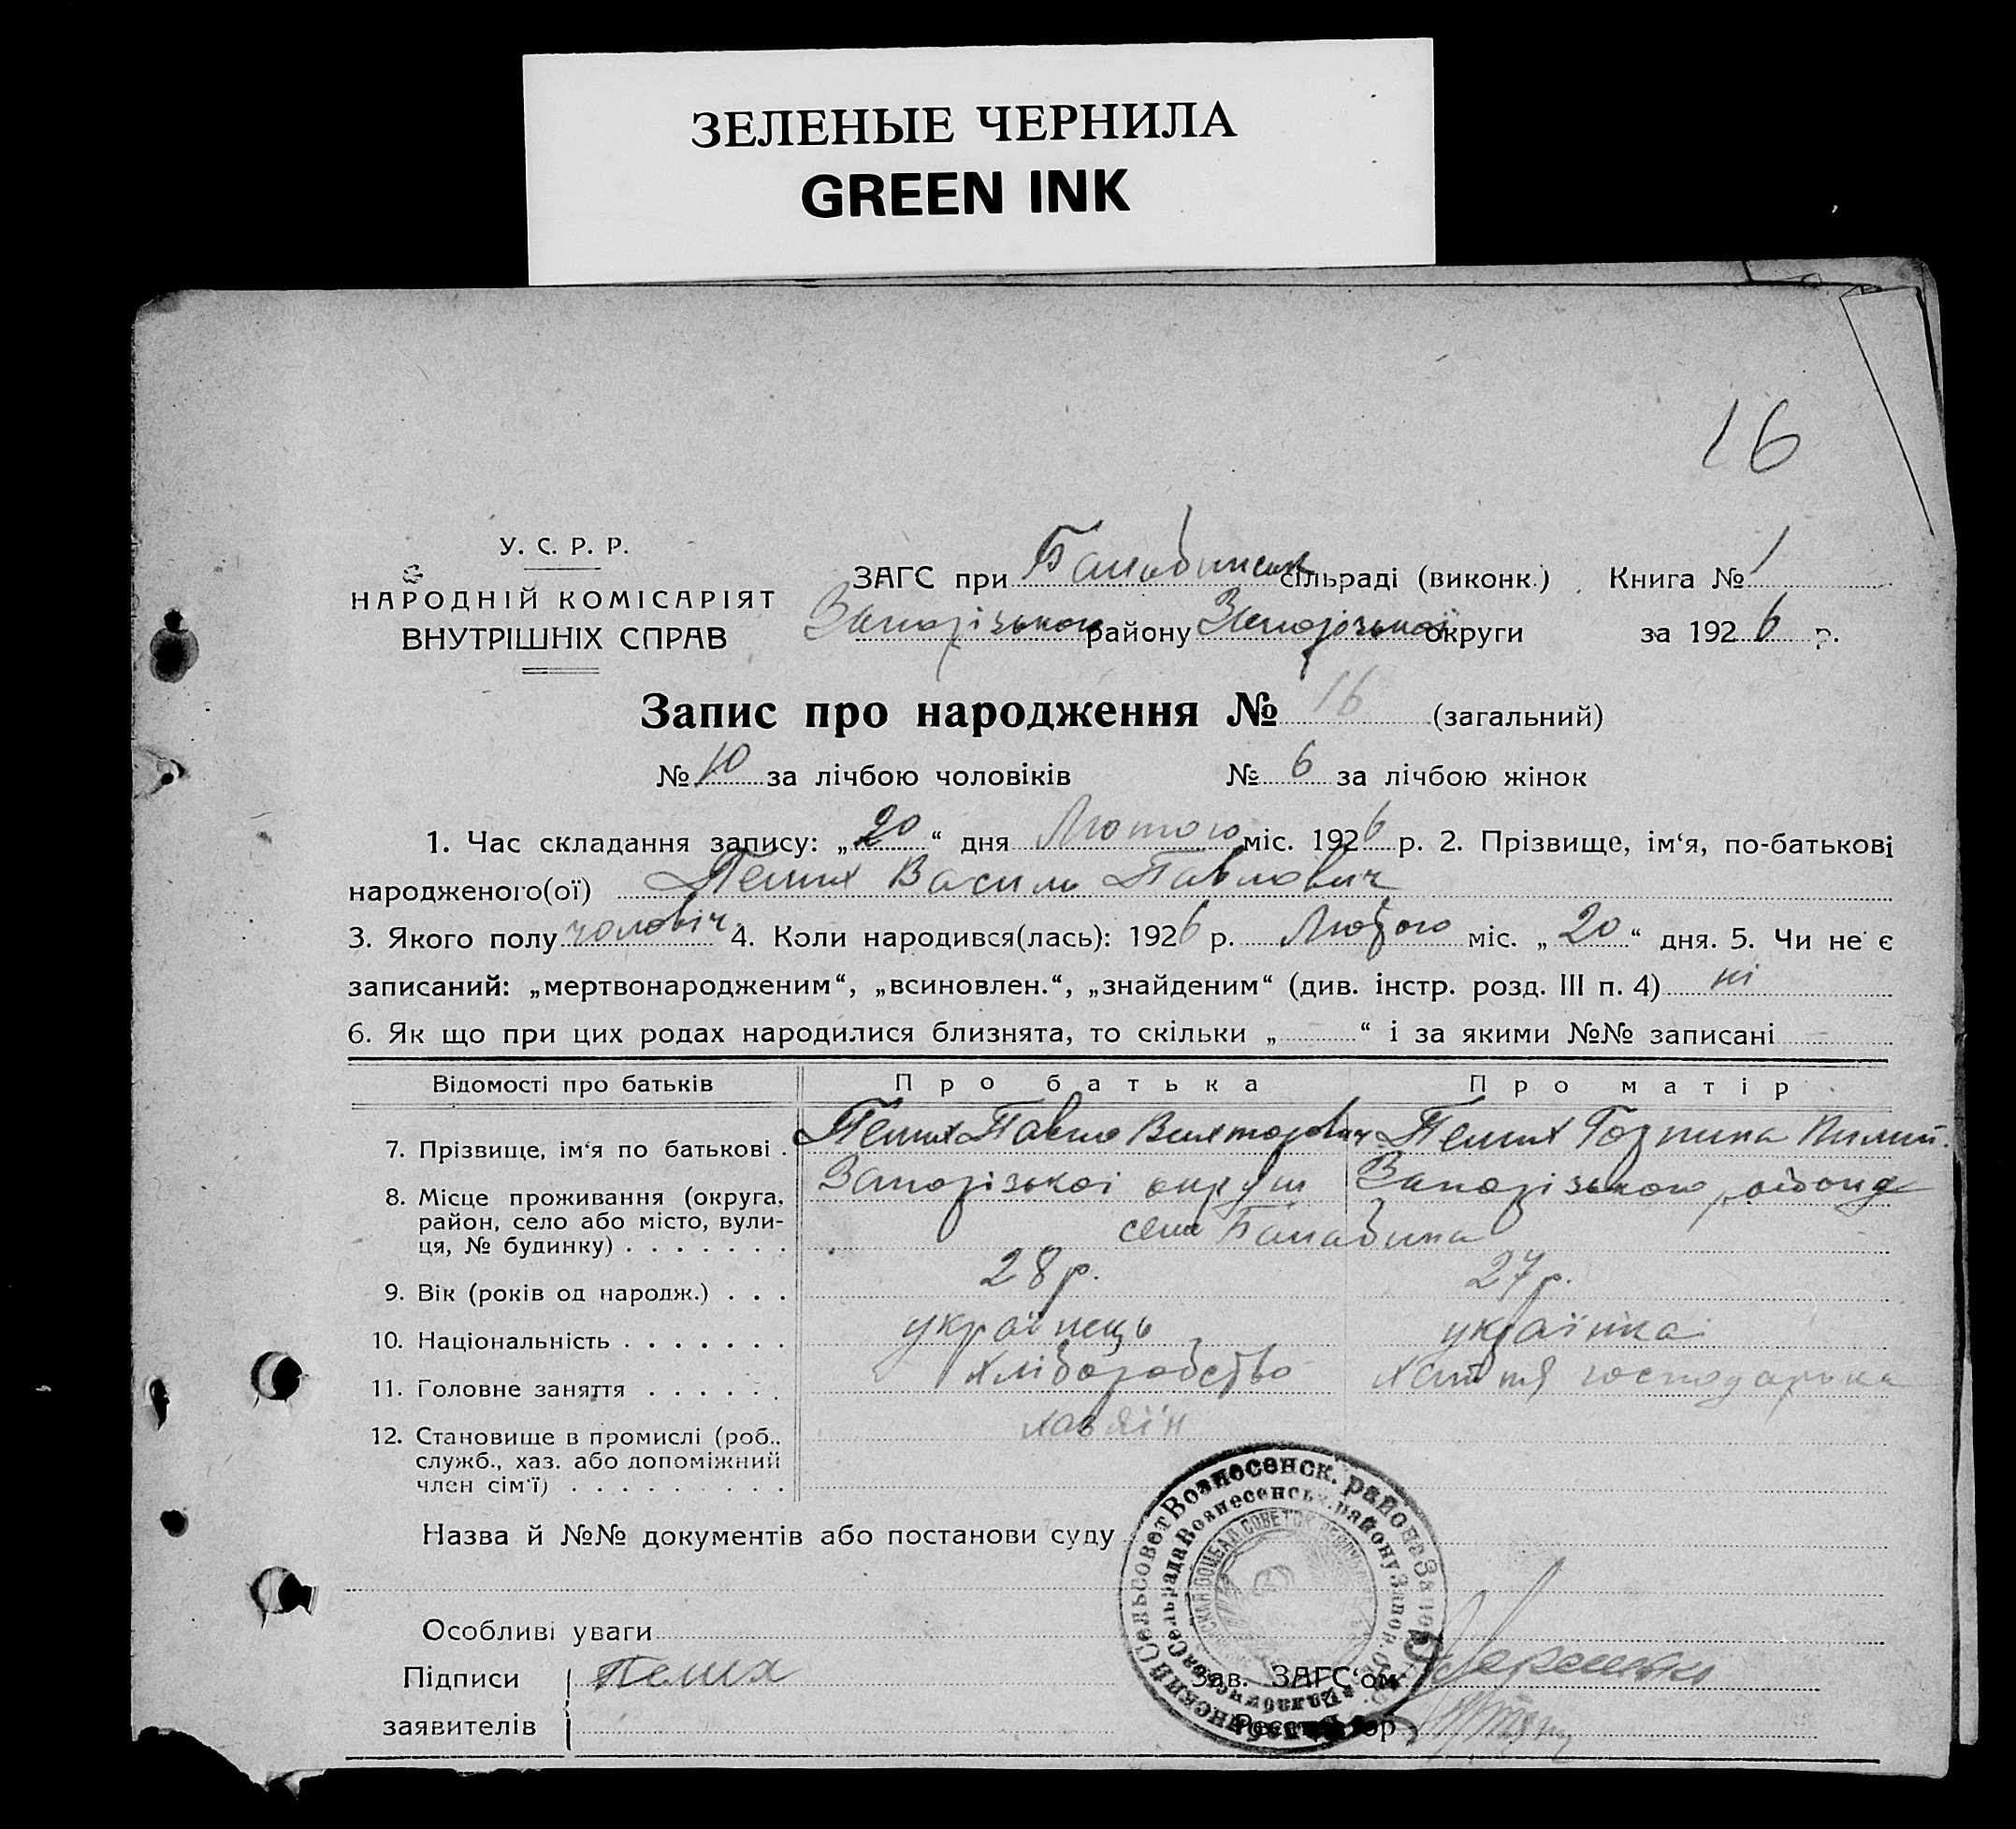 ЗЕЛЕНЫЕ ЧЕРНИЛА
GREEN INK
16
У. С. Р. Р.
НАРОДНІЙ КОМІСАРІЯТ
ВНУТРІШНІХ СПРАВ
ЗАГС при Балабинськ сільраді (виконк.) Книга № 1
Запорізького району Запорізької округи за 1926 р.
Запис про народження № 16 (загальний)
№ 10 за лічбою чоловіків № 6 за лічбою жінок
1. Час складання запису: „20“ дня Лютого міс. 1926 р. 2. Прізвище, ім‘я, по-батькові
народженого(ої) Пелих Василь Павлович
3. Якого полу чоловіч. 4. Коли народився(лась): 1926 р. Лютого міс. „20“ дня. 5. Чи не є
записаний: „мертвонародженим“, „всиновлен.“, „знайденим“ (див. інстр. розд. III п. 4) ні
6. Як що при цих родах народилися близнята, то скільки „ “ і за якими №№ записані
Відомості про батьків Про батька Про матір
7. Прізвище, ім‘я по батькові . Пелих Павло Вихторович Пелих Горпина Пилип.
8. Місце проживання (округа, Запорізької округи Запорізького району
район, село або місто, вули- села Балабина
ця, № будинку) . . . . . . .
9. Вік (років од народж.) . . . 28 р. 27 р.
10. Національність . . . . . . . українець українка
11. Головне заняття . . . . . . хліборобство хатня господарька
12. Становище в промислі (роб., хазяїн
служб., хаз. або допоміжний
член сім‘ї) . . . . . . . . .
Назва й №№ документів або постанови суду
Особливі уваги
Підписи Пелих Зав. ЗАГС‘ом
заявителів Реєстратор
Сельсовет Вознесенск. района Запор.
Сельрада Вознесенськ. району Запор. окр.